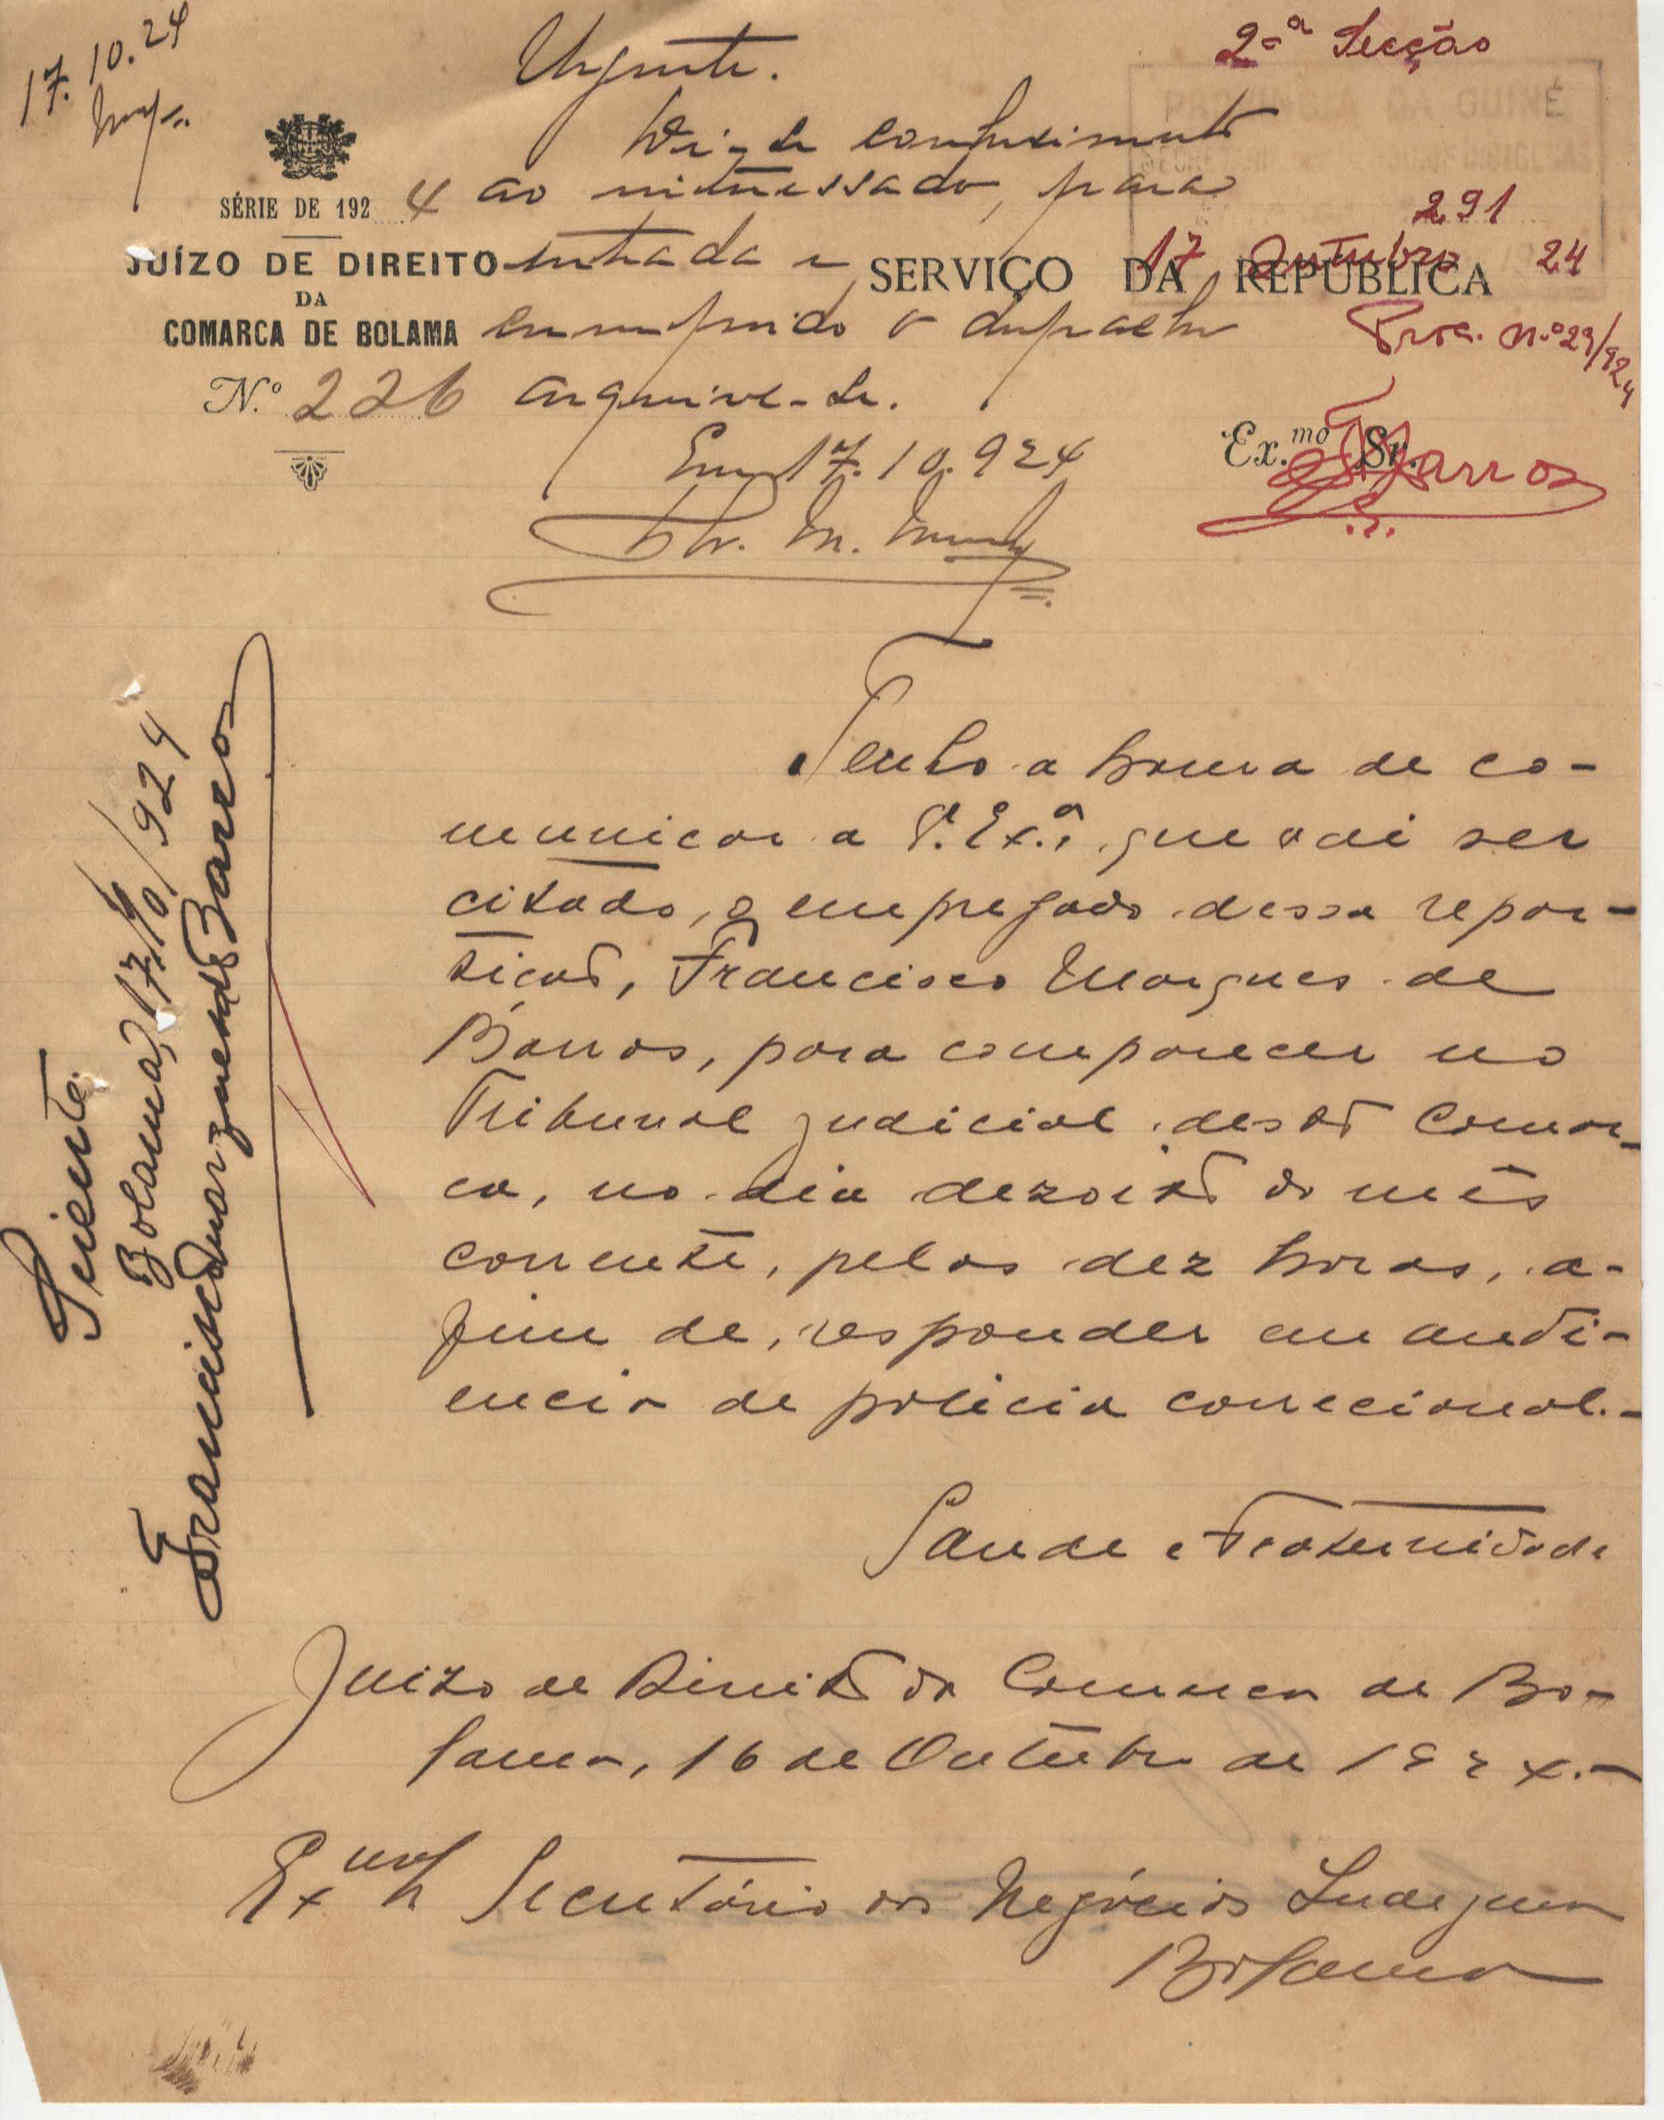 17.10.24
Urgente.
2.ª Secção
PROVINCIA DA GUINÉ
Dê-se conhecimento
SÉRIE DE 1924
ao interessado, para
291
JUÍZO DE DIREITO
entrada e
SERVIÇO DA REPÚBLICA
17 Outubro 24
DA
COMARCA DE BOLAMA
cumprido o despacho
Proc. n.º 29/924
N.º 226
arquive-se.
Em 17.10.924
Ex.mo Sr.
Barros
Tenho a honra de co-
municar a V. Ex.ª, que vai ser
citado, o empregado dessa repar-
tição, Francisco Marques de
Barros, para comparecer no
Tribunal judicial desta Comar-
ca, no dia dezoito do mês
corrente, pelas dez horas, a-
fim de, responder em audi-
encia de policia correcional.-
Saude e Fraternidade
Juizo de Direito da Comarca de Bo-
lama, 16 de Outubro de 1924.-
Ex.mo Sr. Secretário dos Negócios Indigenas
Bolama
Sciente
Bolama, 17/10/924
Francisco Marques de Barros